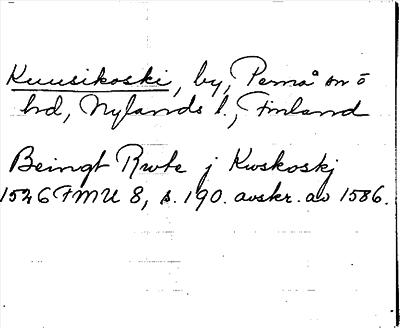 Kuusikoski, by, Pernå sn ö
hd, Nylands l., Finland
Beingt Rwte j Kwskoskj
1526 FMU 8, s. 190. avskr. av 1586.